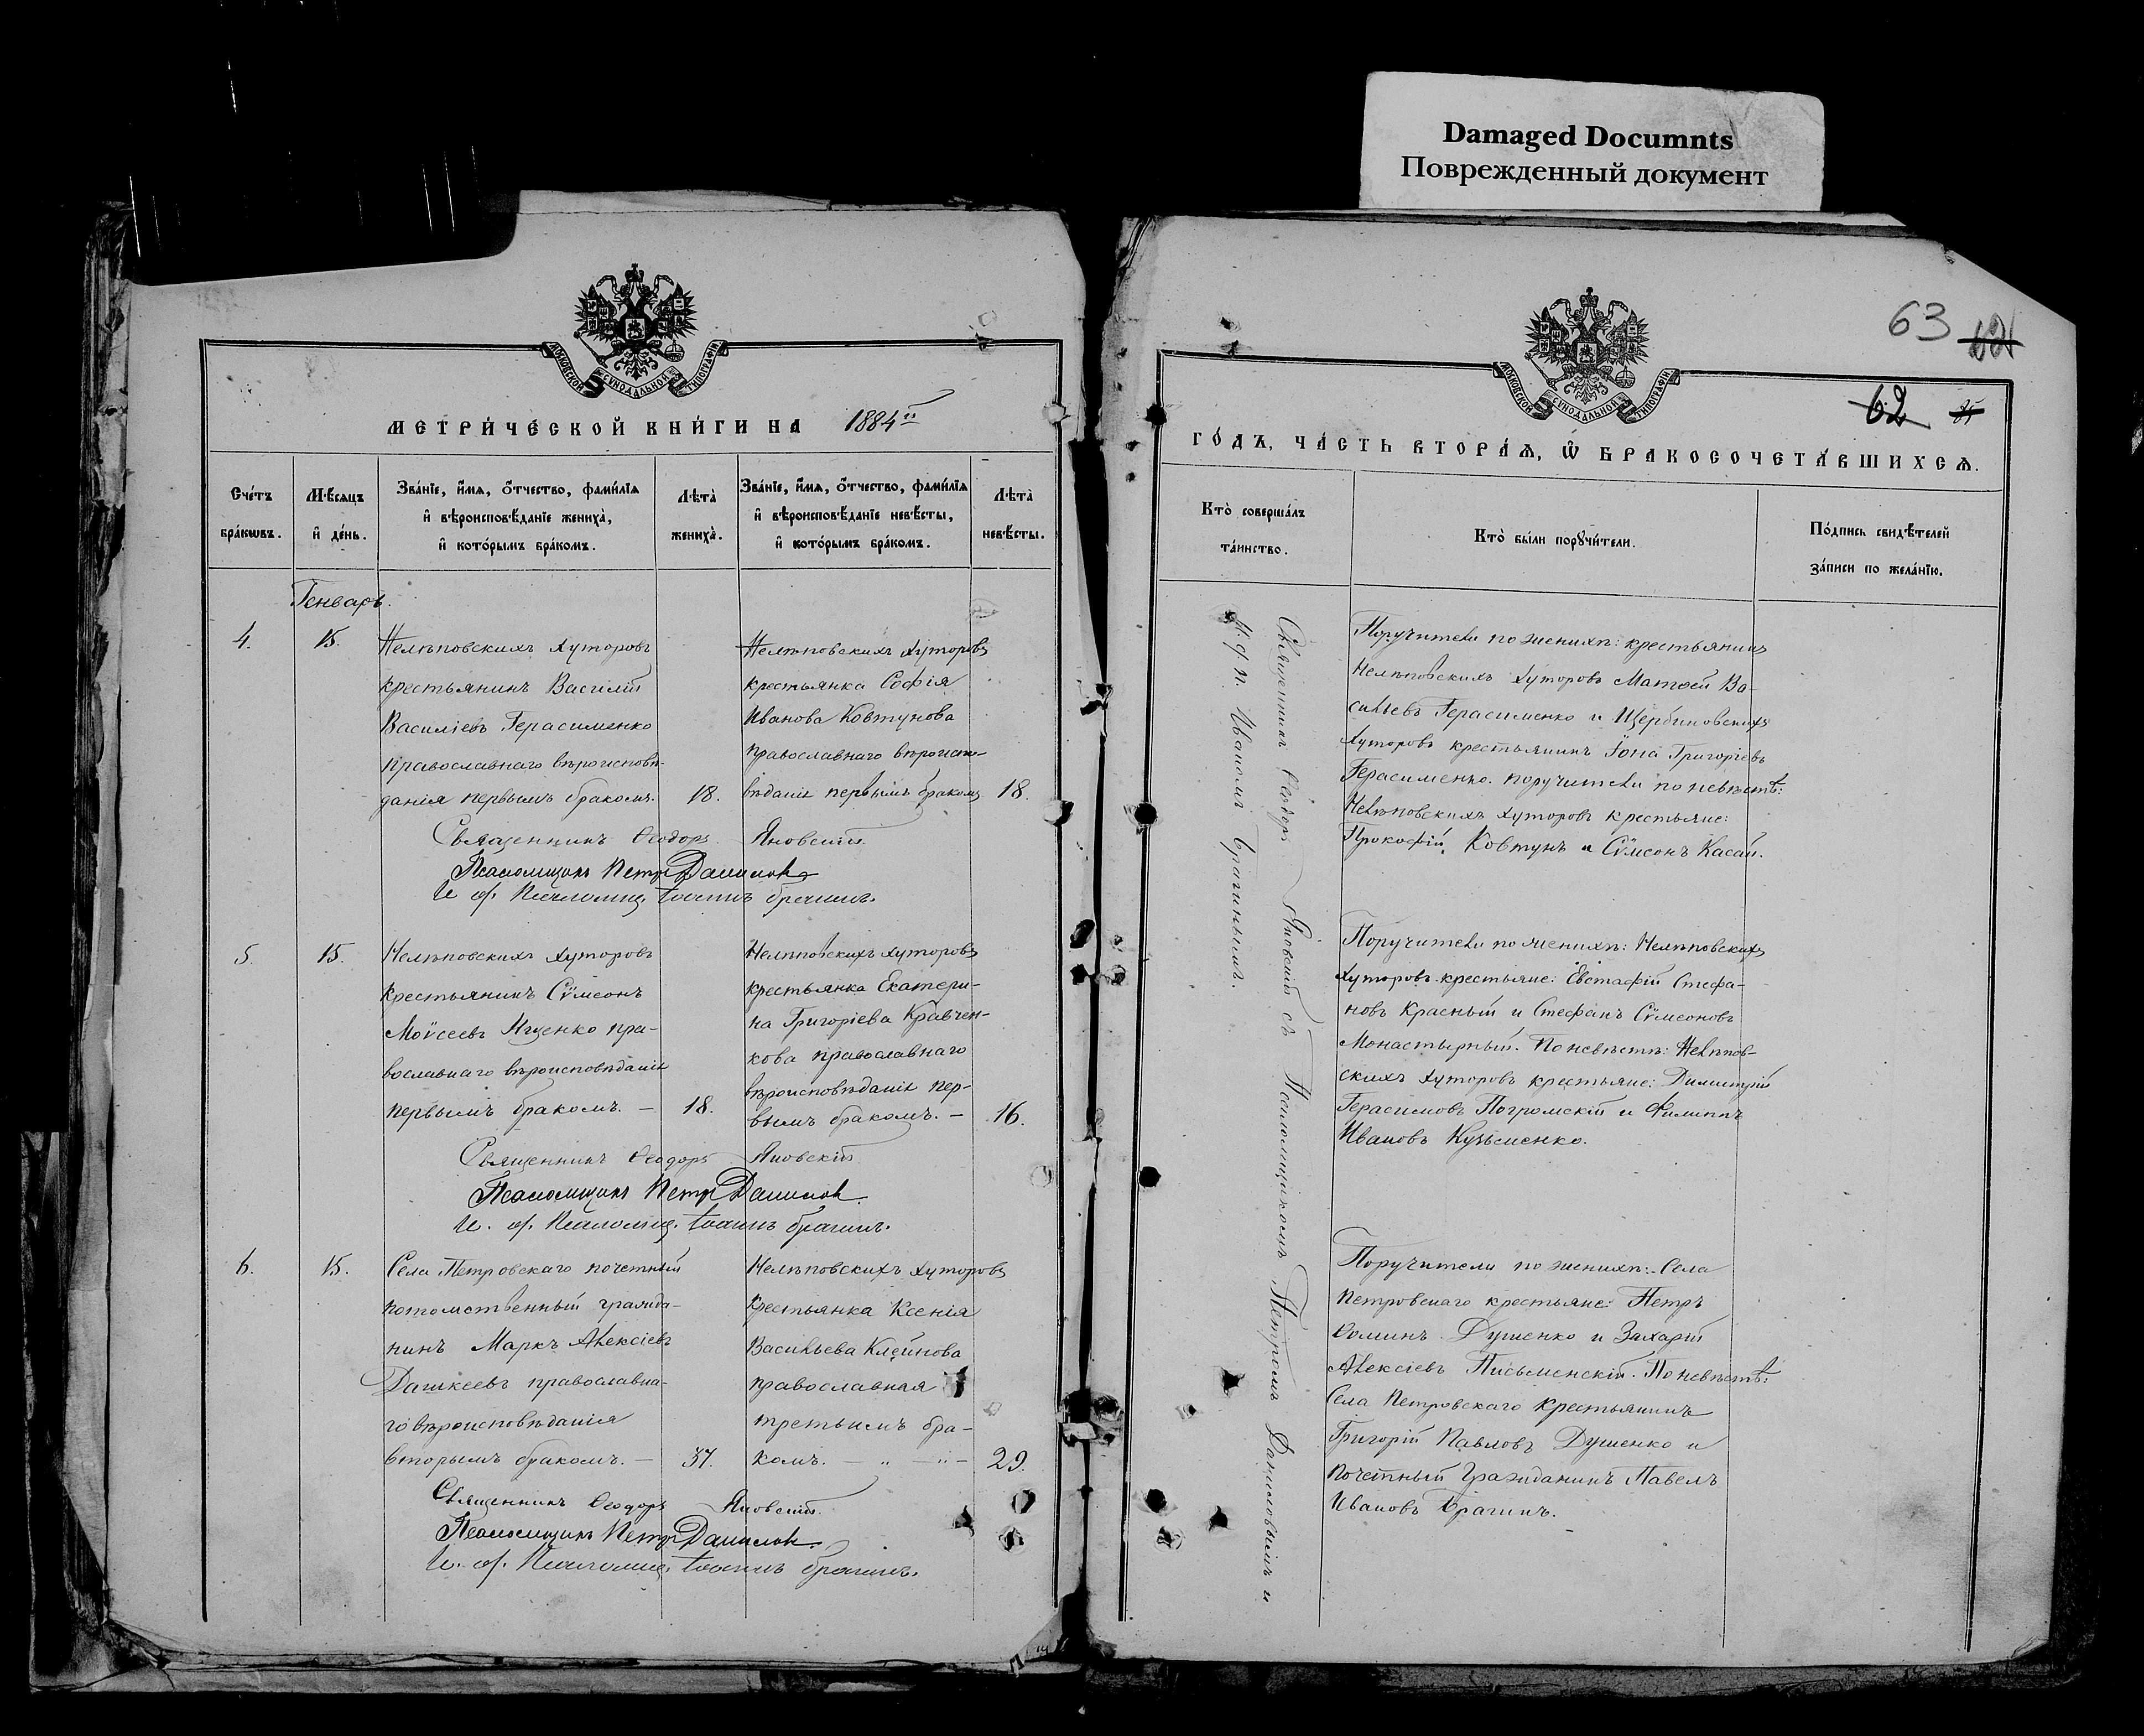 Damaged Documnts
Поврежденный документ
МОСКОВСКОЙ СѴНОДАЛЬНОЙ ТИПОГРАФІИ
МЕТРИ́ЧЕСКОЙ КНИ́ГИ НА 1884й
Сче́тъ бра́кѡвъ.
Мѣ́сяцъ и҆ де́нь.
Зва́нїе, и҆́мѧ, ѻ҆́тчество, фами́лїѧ
и҆ вѣроисповѣ́данїе жениха̀,
и҆ кото́рымъ бра́комъ.
Лѣ́та̀
жениха̀.
Зва́нїе, и҆́мѧ, ѻ҆́тчество, фами́лїѧ
и҆ вѣроисповѣ́данїе невѣ́сты,
и҆ кото́рымъ бра́комъ.
Лѣ́та̀
невѣ́сты.
Генварь.
4.
15.
Нелѣповскихъ хуторовъ
крестьянинъ Василій
Василіевъ Герасименко
православнаго вѣроисповѣ-
данія первымъ бракомъ.
18.
Нелѣповскихъ хуторовъ
крестьянка Софія
Иванова Ковтунова
православнаго вѣроиспо-
вѣданія первымъ бракомъ
18.
Священникъ Ѳеодоръ Яновскій
Псаломщикъ Петръ Даниловъ
И. ф. Псаломщ. Іоаннъ Брагинъ.
5.
15.
Нелѣповскихъ хуторовъ
крестьянинъ Сѵмеонъ
Моѵсеевъ Ищенко пра-
вославнаго вѣроисповѣданія
первымъ бракомъ. —
18.
Нелѣповскихъ хуторовъ
крестьянка Екатери-
на Григоріева Кравчен-
кова православнаго
вѣроисповѣданія пер-
вымъ бракомъ. —
16.
Священникъ Ѳеодоръ Яновскій
Псаломщикъ Петръ Даниловъ
И. ф. Псаломщ. Іоаннъ Брагинъ.
6.
15.
Села Петровскаго почетный
потомственный гражда-
нинъ Маркъ Алексіевъ
Дашкеевъ православна-
го вѣроисповѣданія
вторымъ бракомъ. —
37.
Нелѣповскихъ хуторовъ
крестьянка Ксенія
Васильева Клейнова
православная
третьимъ бра-
комъ. — „ — „ —
29.
Священникъ Ѳеодоръ Яновскій
Псаломщикъ Петръ Даниловъ
И. ф. Псаломщ. Іоаннъ Брагинъ.
63
62
МОСКОВСКОЙ СѴНОДАЛЬНОЙ ТИПОГРАФІИ
ГО́ДЪ, ЧА́СТЬ ВТОРА́Ѧ, Ѡ҆ БРАКОСОЧЕТА́ВШИХСѦ.
Кто̀ соверша́лъ
та́инство.
Кто̀ бы́ли порꙋчи́тели.
По́дпись свидѣ́телей
за́писи по жела́нїю.
Священникъ Ѳеодоръ Яновскій съ Псаломщикомъ Петромъ Даниловымъ и
И. ф. п. Иваномъ Брагинымъ.
Поручители по женихѣ: крестьянинъ
Нелѣповскихъ хуторовъ Матѳей Ва-
сильевъ Герасименко и Щербиновскихъ
хуторовъ крестьянинъ Іона Григоріевъ
Герасименко. поручители по невѣстѣ:
Нелѣповскихъ хуторовъ крестьяне:
Прокофій Ковтунъ и Сѵмеонъ Касай.
Поручители по женихѣ: Нелѣповскихъ
хуторовъ крестьяне: Евстафій Стефа-
новъ Красный и Стефанъ Сѵмеоновъ
Монастырный. По невѣстѣ: Нелѣпов-
скихъ хуторовъ крестьяне: Димитрій
Герасимовъ Погромскій и Филиппъ
Ивановъ Кузьменко.
Поручители по женихѣ: Села
Петровскаго крестьяне: Петръ
Ѳоминъ Душенко и Захарій
Алексіевъ Письменскій. По невѣстѣ:
Села Петровскаго крестьянинъ
Григорій Павловъ Душенко и
почетный Гражданинъ Павелъ
Ивановъ Брагинъ.